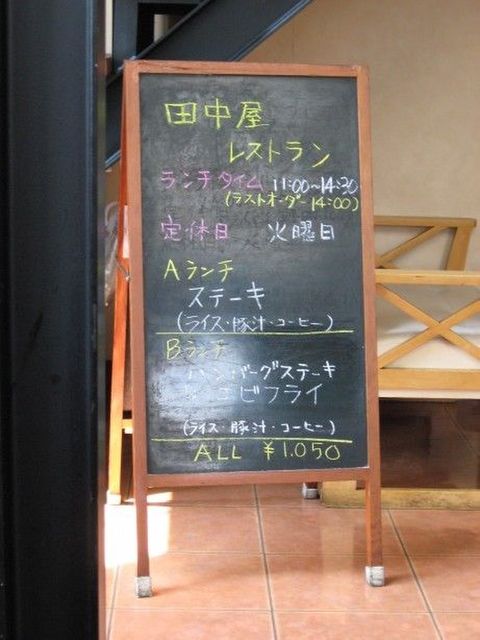 田中屋
レストラン
ランチタイム 11:00~14:30
(ラストオーダー 14:00)
定休日 火曜日
Aランチ
ステーキ
(ライス・豚汁・コーヒー)
Bランチ
ハンバーグステーキ
エビフライ
(ライス・豚汁・コーヒー)
ALL ¥1.050